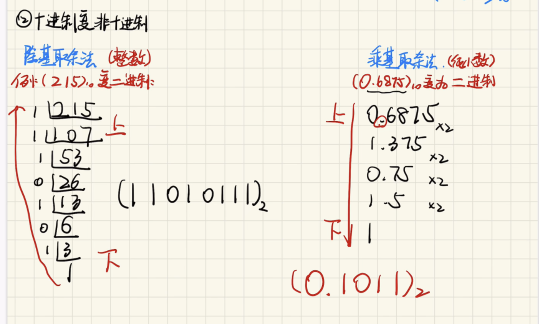 ②十进制变非十进制
除基取余法 (整数)
例: (215)₁₀变二进制:
1 215
1 107 上
1 53
0 26
1 13
0 6
1 3
1 下
(11010111)₂
乘基取余法. (小数)
(0.6875)₁₀变为二进制
上 0.6875 ×2
1.375 ×2
0.75 ×2
1.5 ×2
下 1
(0.1011)₂